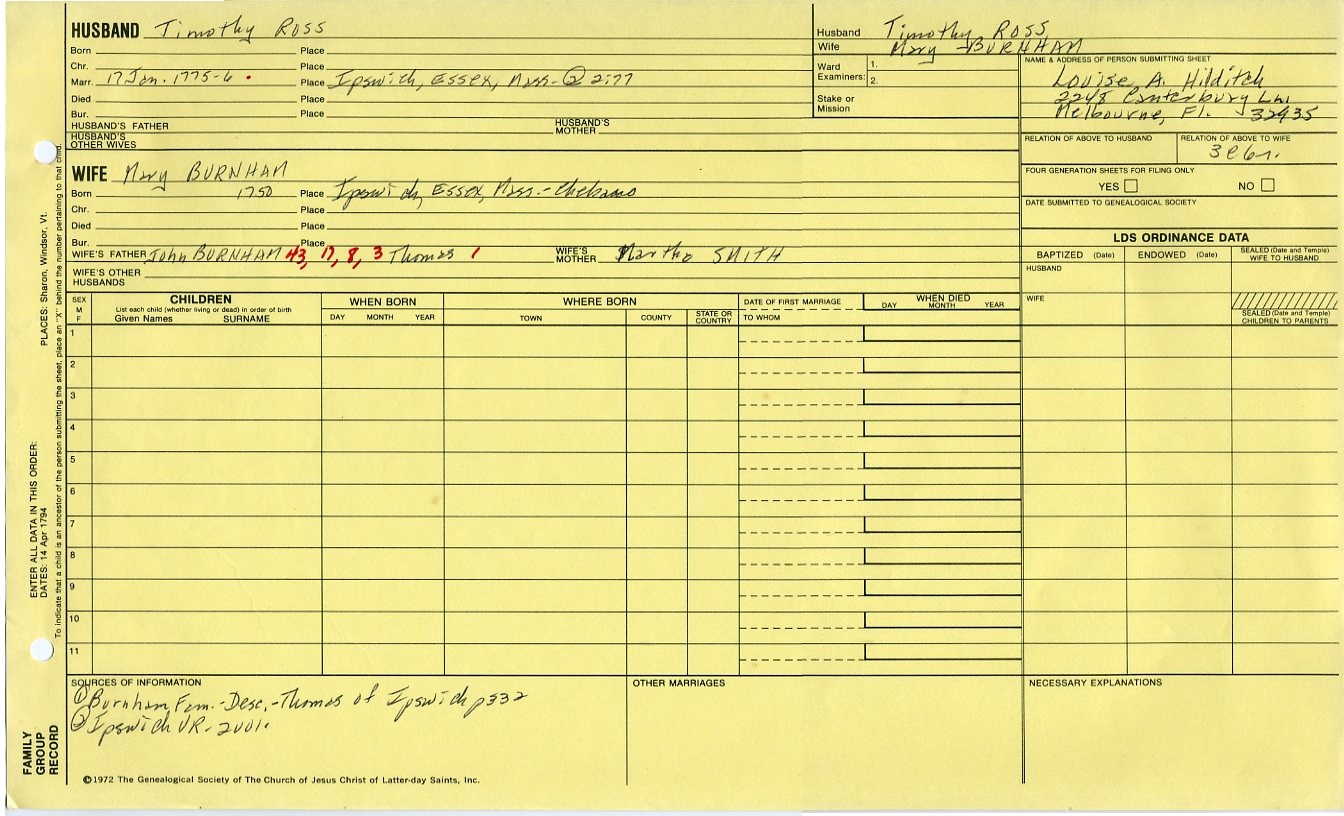 HUSBAND Timothy ROSS
Born Place
Chr. Place
Marr. 17 Jan. 1775-6 Place Ipswich, Essex, Mass- ② 2:77
Died Place
Bur. Place
HUSBAND'S FATHER HUSBAND'S MOTHER
HUSBAND'S OTHER WIVES
Husband Timothy ROSS
Wife Mary BURNHAM
Ward Examiners: 1.
2.
Stake or Mission
NAME & ADDRESS OF PERSON SUBMITTING SHEET
Louise A. Hilditch
2248 Canterbury Ln.
Melbourne, Fl. 32935
RELATION OF ABOVE TO HUSBAND RELATION OF ABOVE TO WIFE
FOUR GENERATION SHEETS FOR FILING ONLY
YES NO
DATE SUBMITTED TO GENEALOGICAL SOCIETY
WIFE Mary BURNHAM
Born 1750 Place Ipswich, ESSEX, Mass.-
Chr. Place
Died Place
Bur. Place
WIFE'S FATHER John BURNHAM 43, 17, 8, 3 Thomas 1 WIFE'S MOTHER Martha SMITH
WIFE'S OTHER HUSBANDS
LDS ORDINANCE DATA
BAPTIZED (Date) ENDOWED (Date) SEALED (Date and Temple) WIFE TO HUSBAND
HUSBAND
WIFE
SEALED (Date and Temple) CHILDREN TO PARENTS
SEX M F CHILDREN WHEN BORN WHERE BORN DATE OF FIRST MARRIAGE WHEN DIED
List each child (whether living or dead) in order of birth
Given Names SURNAME DAY MONTH YEAR TOWN COUNTY STATE OR COUNTRY TO WHOM DAY MONTH YEAR
1
2
3
4
5
6
7
8
9
10
11
SOURCES OF INFORMATION
① Burnham Fam.-Desc.-Thomas of Ipswich p332
② Ipswich VR- 2001.
OTHER MARRIAGES
NECESSARY EXPLANATIONS
©1972 The Genealogical Society of The Church of Jesus Christ of Latter-day Saints, Inc.
FAMILY GROUP RECORD
ENTER ALL DATA IN THIS ORDER:
DATES: 14 Apr 1794 PLACES: Sharon, Windsor, Vt.
To indicate that a child is an ancestor of the person submitting the sheet, place an "X" behind the number pertaining to that child.